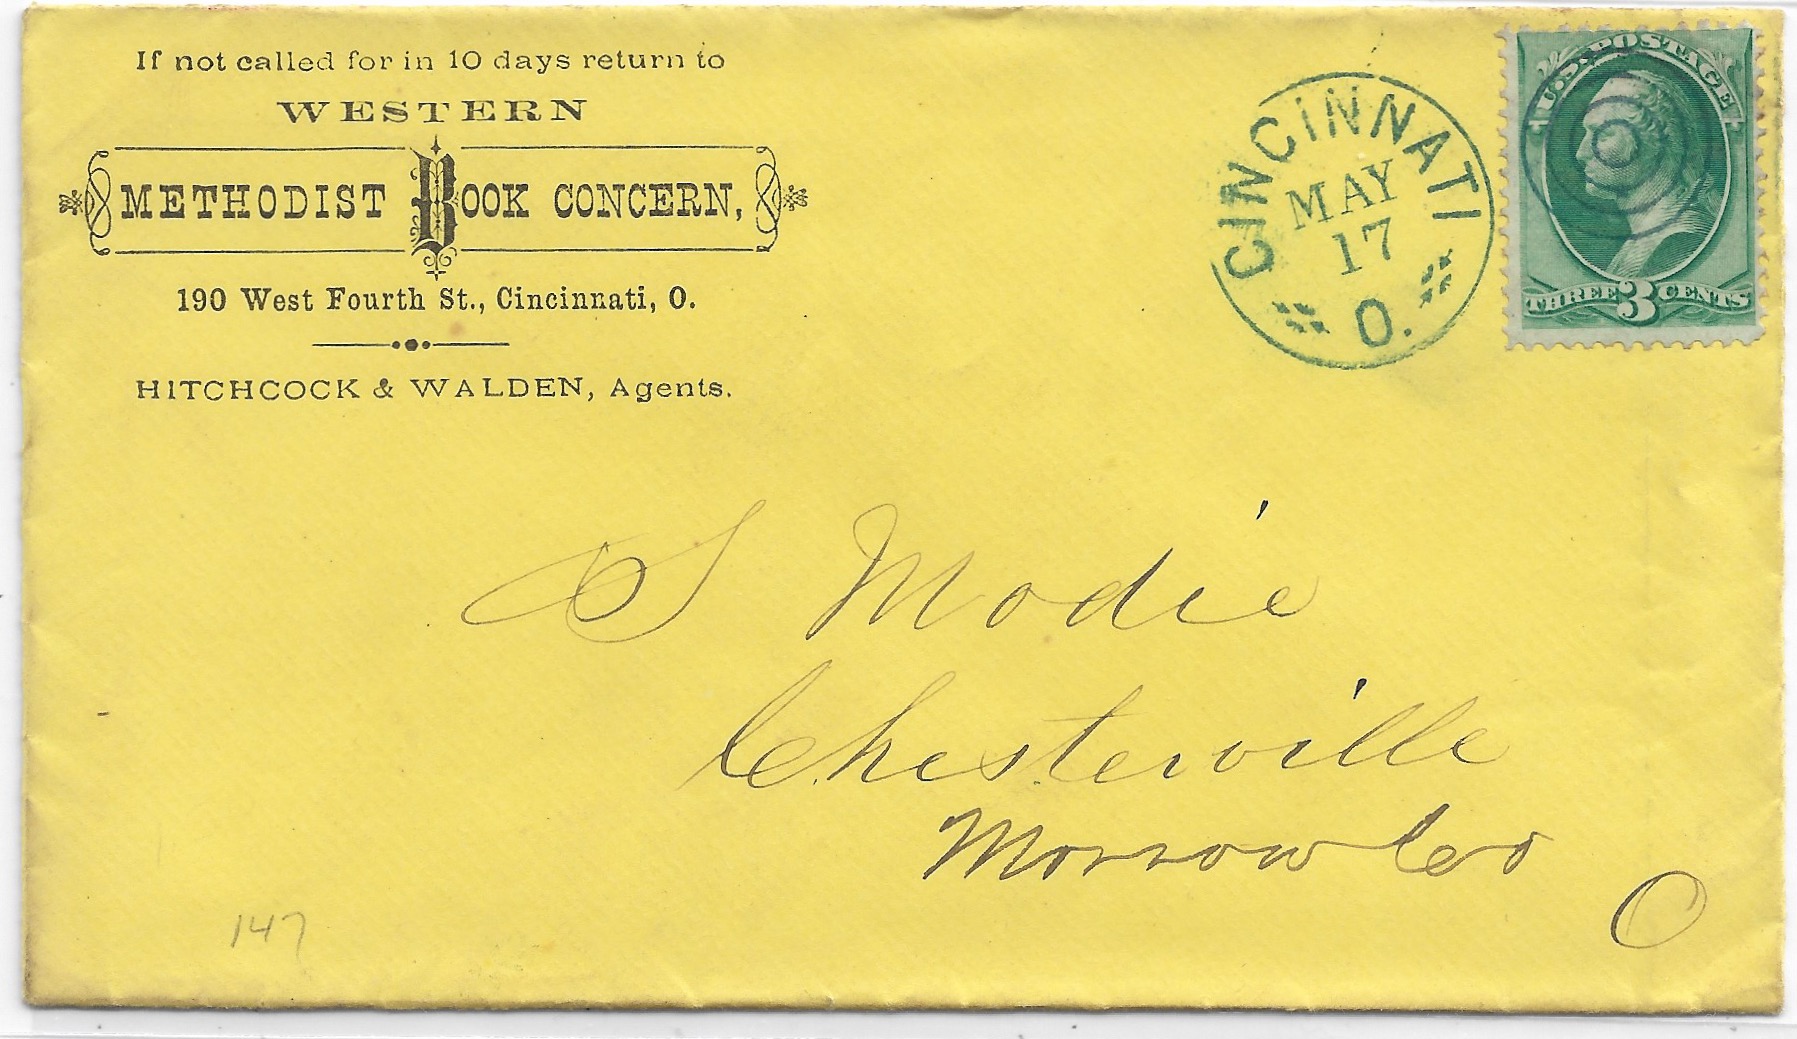 If not called for in 10 days return to
WESTERN
METHODIST BOOK CONCERN,
190 West Fourth St., Cincinnati, O.
HITCHCOCK & WALDEN, Agents.
CINCINNATI
MAY
17
O.
U.S. POSTAGE
THREE 3 CENTS
S Modie
Chesterville
Morrow Co
O
147